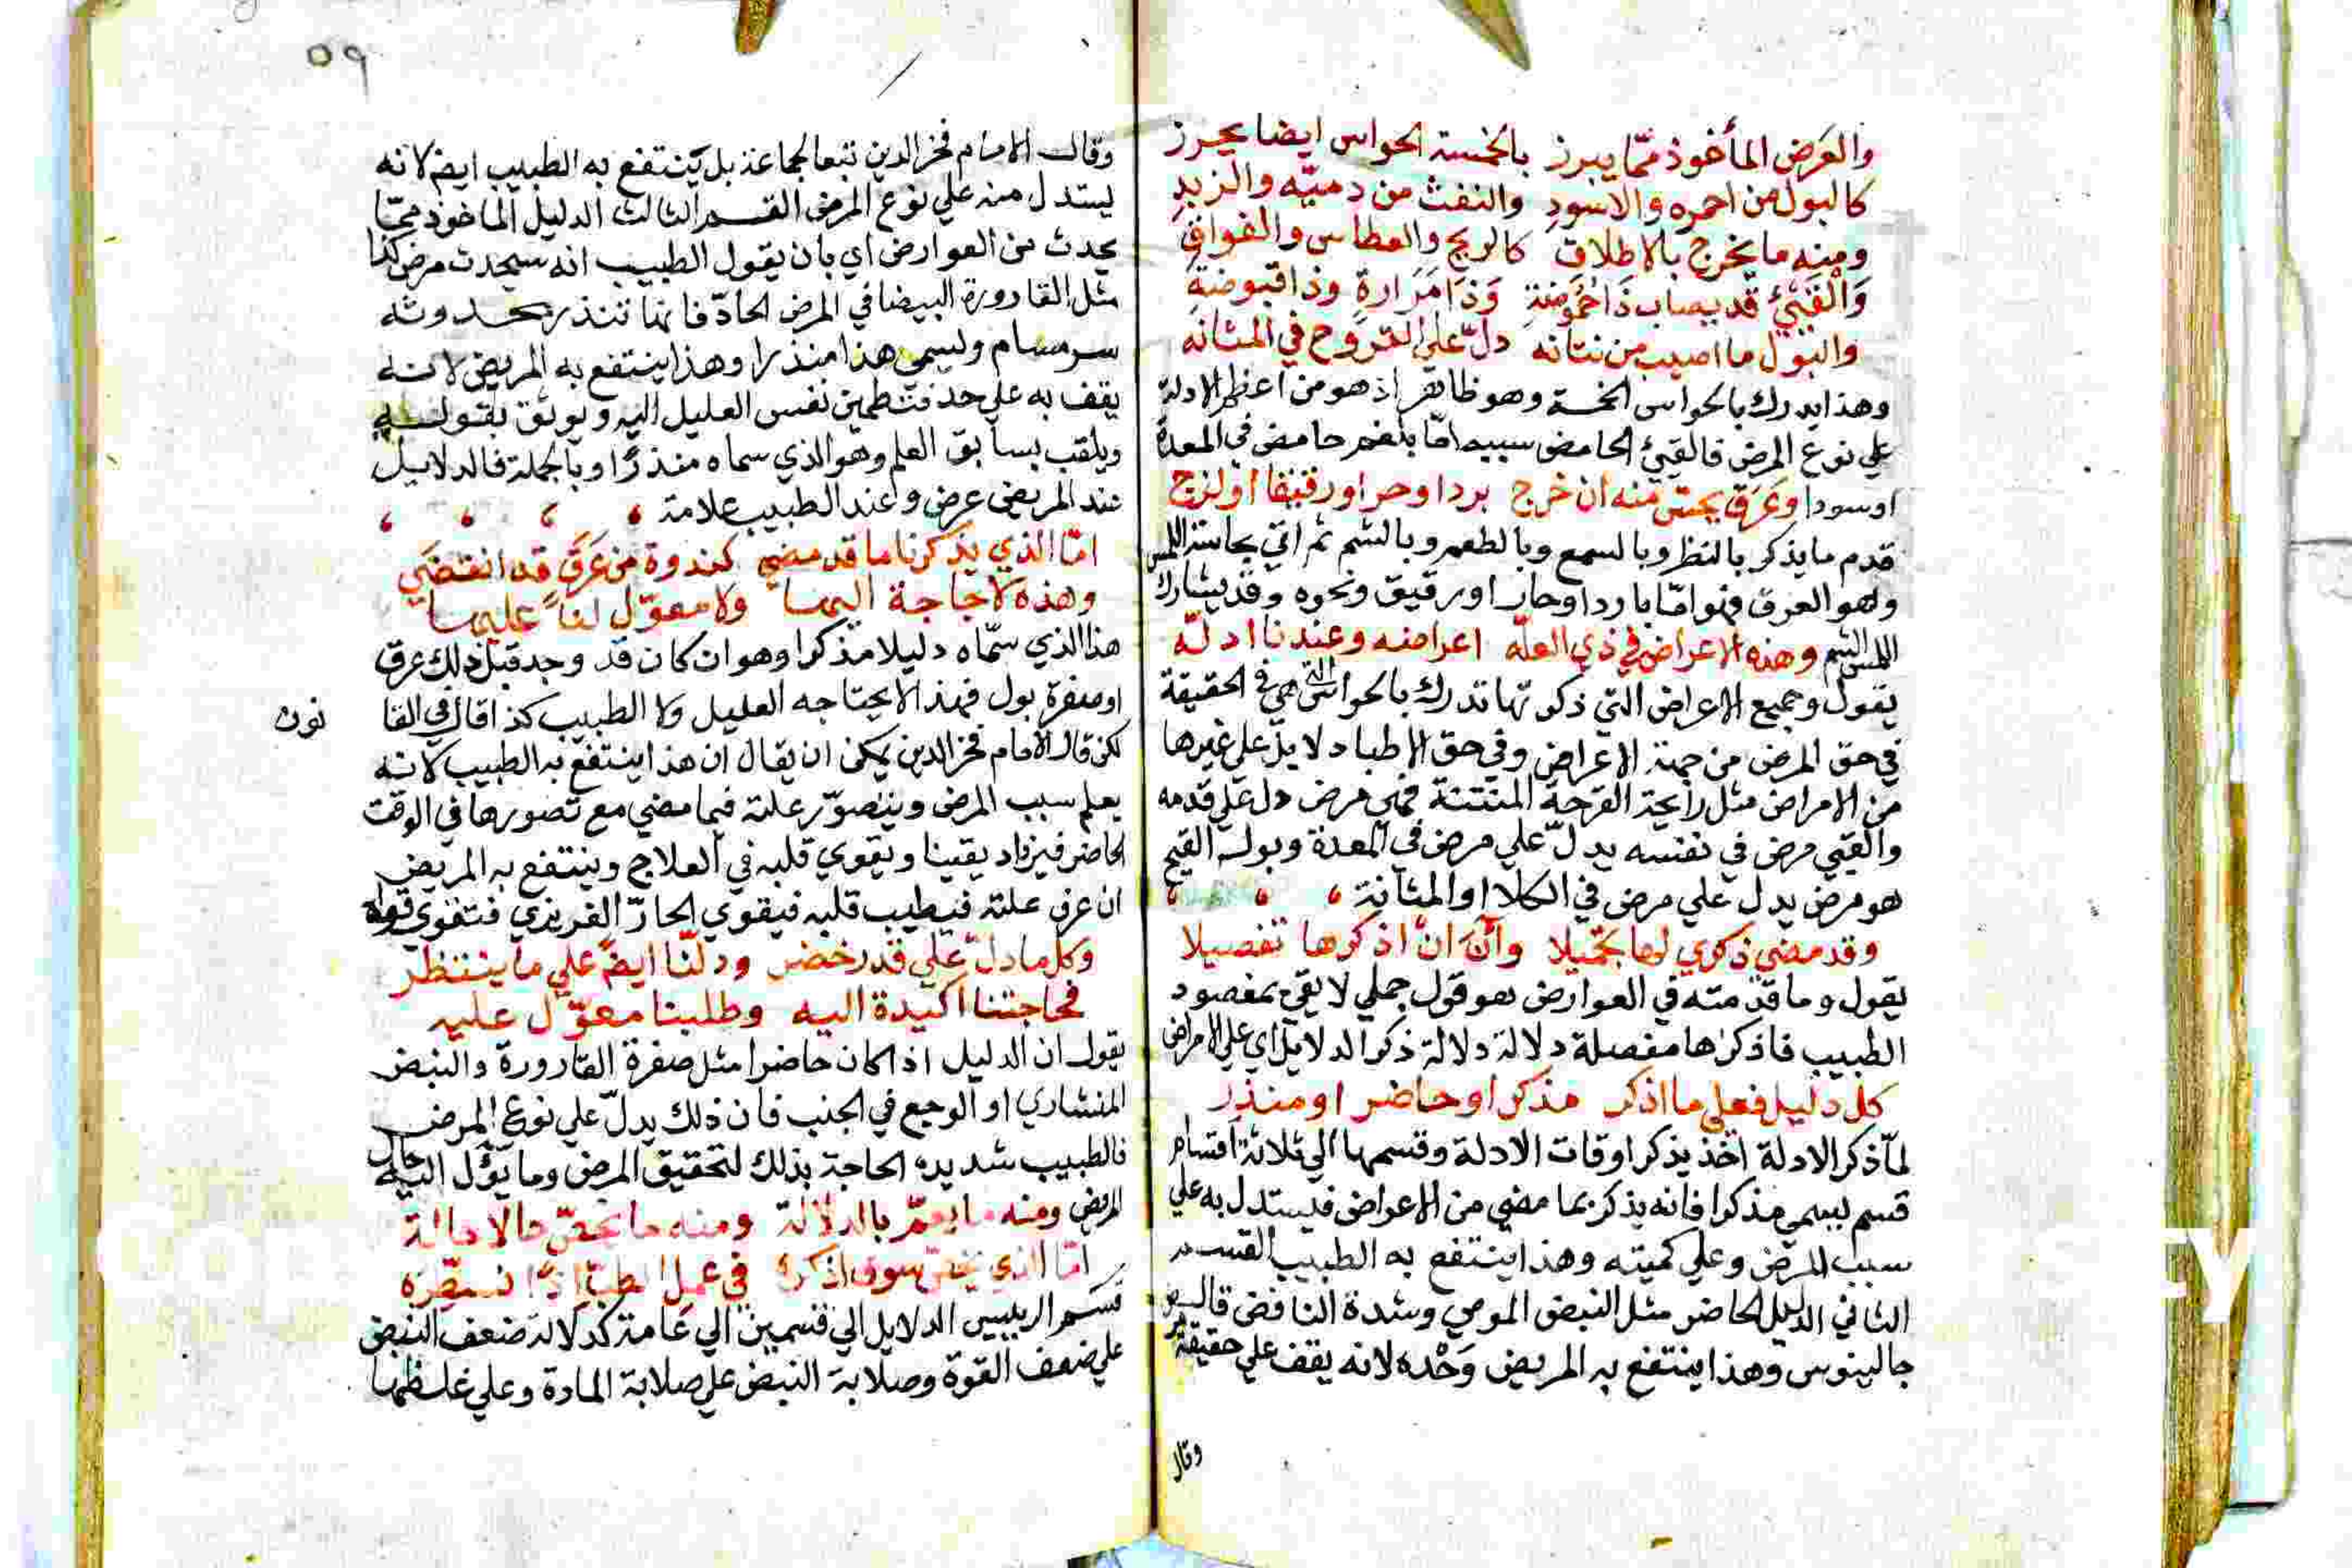 والعَرَض المأخوذ ممّا يبرز بالخمسة الحواس ايضا يحرز
كالبول من احمره والاسودِ والنفث من دميّه والزبدِ
ومنه ما يخرج بالاطلاق كالريح والعطاس والفواقِ
وَالْقَيْئُ قد يصاب ذَا حُمُوضةٍ وَذَا مَرَارةٍ وذا قبوضةٍ
والبول ما اصيب من نتانه دلّ على القروح في المثانه
وهذا يدرك بالحواس الخمسة وهو ظاهر اذ هو من اعظم الادلة
علي نوع المرض فالقيئ الحامض سببه امّا بلغم حامض في المعدة
او سودا وعَرَق يجتنى منه ان خرج بردا وحرا ورقيقا او لزج
قدم ما يذكر بالنظر وبالسمع وبالطعم وبالشم ثم اتي بحاسة اللمس
وهو العرق فهو امّا باردا وحارا ورقيق ونحوه وقد يشارك
اللمس الشم وهذه الاعراض في ذي العلّه اعراضه وعندنا ادلّه
يقول وجميع الاعراض التي ذكرتها تدرك بالحواس هي في الحقيقة
في حق المرض من جهة الاعراض وفي حق الاطبا دلايل علي غيرها
من الامراض مثل رايحة القرحة المنتنة فهي مرض دل علي قدمه
والقيي مرض في نفسه يدلّ علي مرض في المعدة وبول القيح
هو مرض يدل علي مرض في الكلا او المثانة
وقد مضي ذكري لها تجميلا وآن ان اذكرها تفصيلا
يقول وما قدمته في العوارض هو قول جملي لا يفي بمقصود
الطبيب فاذكرها مفصلة دلالة دلالة ذكر الدلايل اي علي الامراض
كل دليل فعلي ما اذكر مذكر او حاضر او منذر
لمّا ذكر الادلة اخذ يذكر اوقات الادلة وقسمها الي ثلاثة اقسام
قسم يسمي مذكرا فانه يذكر بما مضي من الاعراض فيستدل به علي
سبب المرض وعلي كميته وهذا ينتفع به الطبيب القسم
الثاني الدليل الحاضر مثل النبض الموجي وشدة النافض قال
جالينوس وهذا ينتفع به المريض وَحْده لانه يقف علي حقيقة
وقال
٥٩
وقال الامام فخر الدين تبعا لجماعة بل ينتفع به الطبيب ايضا لانه
يستدل منه علي نوع المرض القسم الثالث الدليل الماخوذ ممّا
يحدث من العوارض اي بان يقول الطبيب انه سيحدث مرض كذا
مثل القارورة البيضا في المرض الحادّ فانها تنذر بحدوث
سرسام ويسمي هذا منذرا وهذا ينتفع به المريض لانه
يقف به علي حد فتطمين نفس العليل اليه ويوثق بقوله
ويلقب بسابق العلم وهو الذي سماه منذرًا وبالجملة فالدلايل
عند المريض عرض وعند الطبيب علامة
امّا الذي يذكرنا ما قد مضي كندوة من عَرَق قد انقضَي
وهذه لا حاجة اليها ولا معوّل لنا عليها
هذا الذي سمّاه دليلا مذكرا وهو ان كان قد وجد قبل ذلك عرق
او صفرة بول فهذا لا يحتاجه العليل ولا الطبيب كذا قال في القا
نون
لكن قال الامام فخر الدين يمكن ان يقال ان هذا ينتفع به الطبيب لانه
يعلم سبب المرض ويتصوّر علته فيما مضي مع تصورها في الوقت
الحاضر فيزداد يقينا ويقوي قلبه في العلاج وينتفع به المريض
ان عرف علته فيطيب قلبه فيقوي الحارّ الغريزي فتقوي قواه
وكل ما دلّ علي قدر خضر ودلّنا ايضا علي ما ينتظر
فحاجتنا اكيدة اليه وطلبنا معوّل عليه
يقول ان الدليل اذا كان حاضرا مثل صفرة القارورة والنبض
المنشاري او الوجع في الجنب فان ذلك يدلّ علي نوع المرض
فالطبيب شديده الحاجة بذلك لتحقيق المرض وما يَؤُل اليه حال
المريض ومنه ما يعمّ بالدلالة ومنه ما يخصّ حالا حالة
امّا الذي يخصّ سوف اذكرهُ في عمل الطبّ
قسّم الرييس الدلايل الي قسمين الي عَامة كدلالة ضعف النبض
علي ضعف القوة وصلابة النبض علي صلابة المادة وعلي غلظها